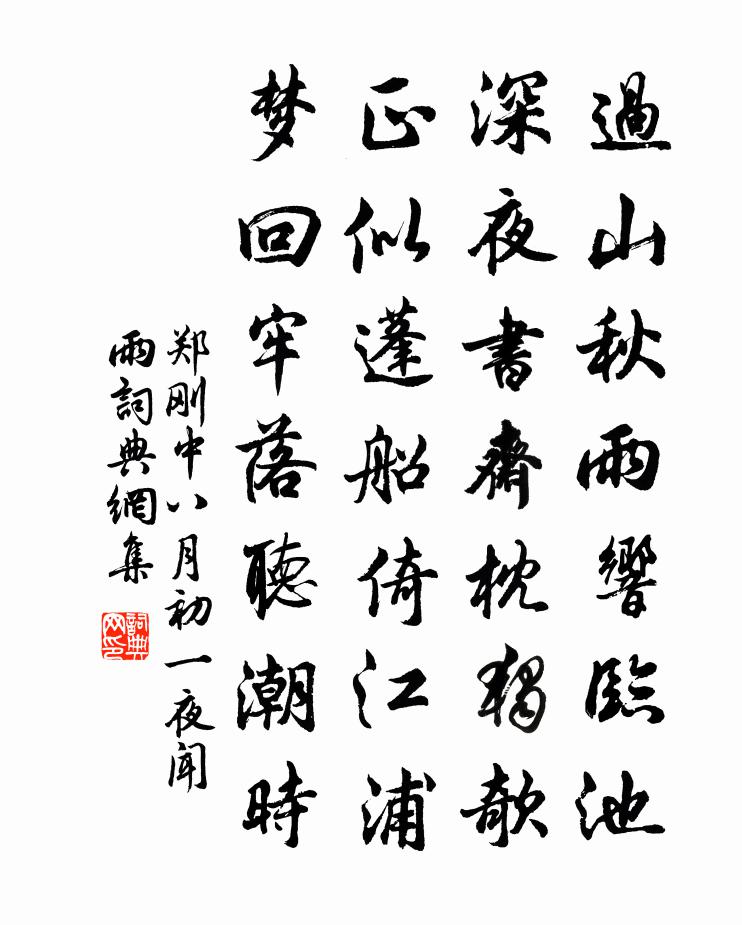 過山秋雨響臨池
深夜書齋枕獨欹
正似蓬船倚江浦
梦回牢落聽潮時
郑刚中八月初一夜闻
雨詞典網集
詞典
网印